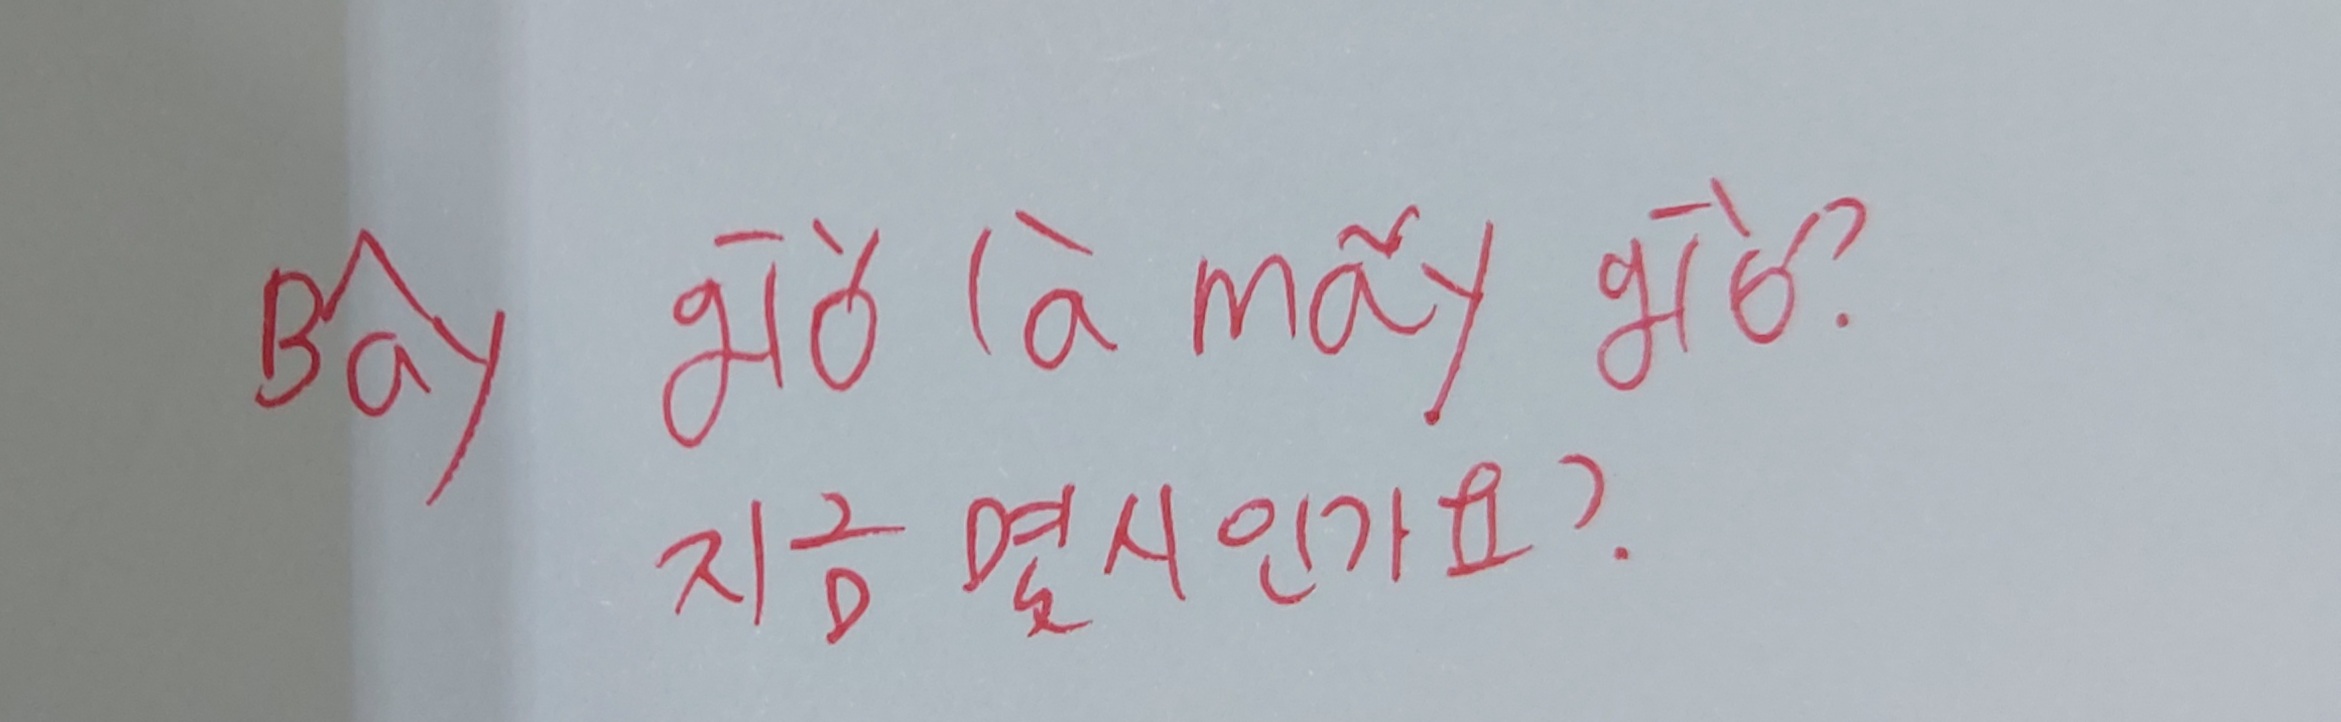 Bây giờ là mấy giờ?
지금 몇시인가요?